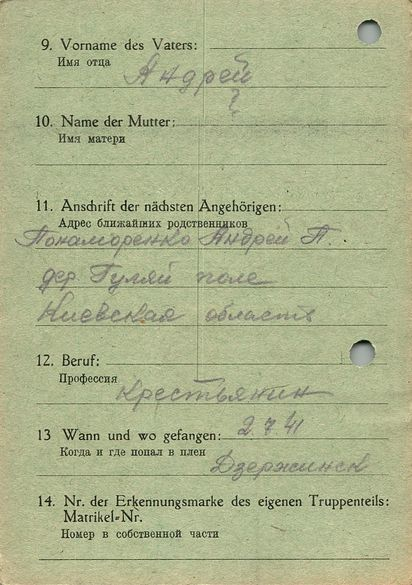 9. Vorname des Vaters:
Имя отца
Андрей
?
10. Name der Mutter:
Имя матери
11. Anschrift der nächsten Angehörigen:
Адрес ближайших родственников
Пономоренко Андрей П.
дер Гуляй поле
Киевская область
12. Beruf:
Профессия
крестьянин
13 Wann und wo gefangen: 2.7.41
Когда и где попал в плен
Дзержинск
14. Nr. der Erkennungsmarke des eigenen Truppenteils:
Matrikel-Nr.
Номер в собственной части